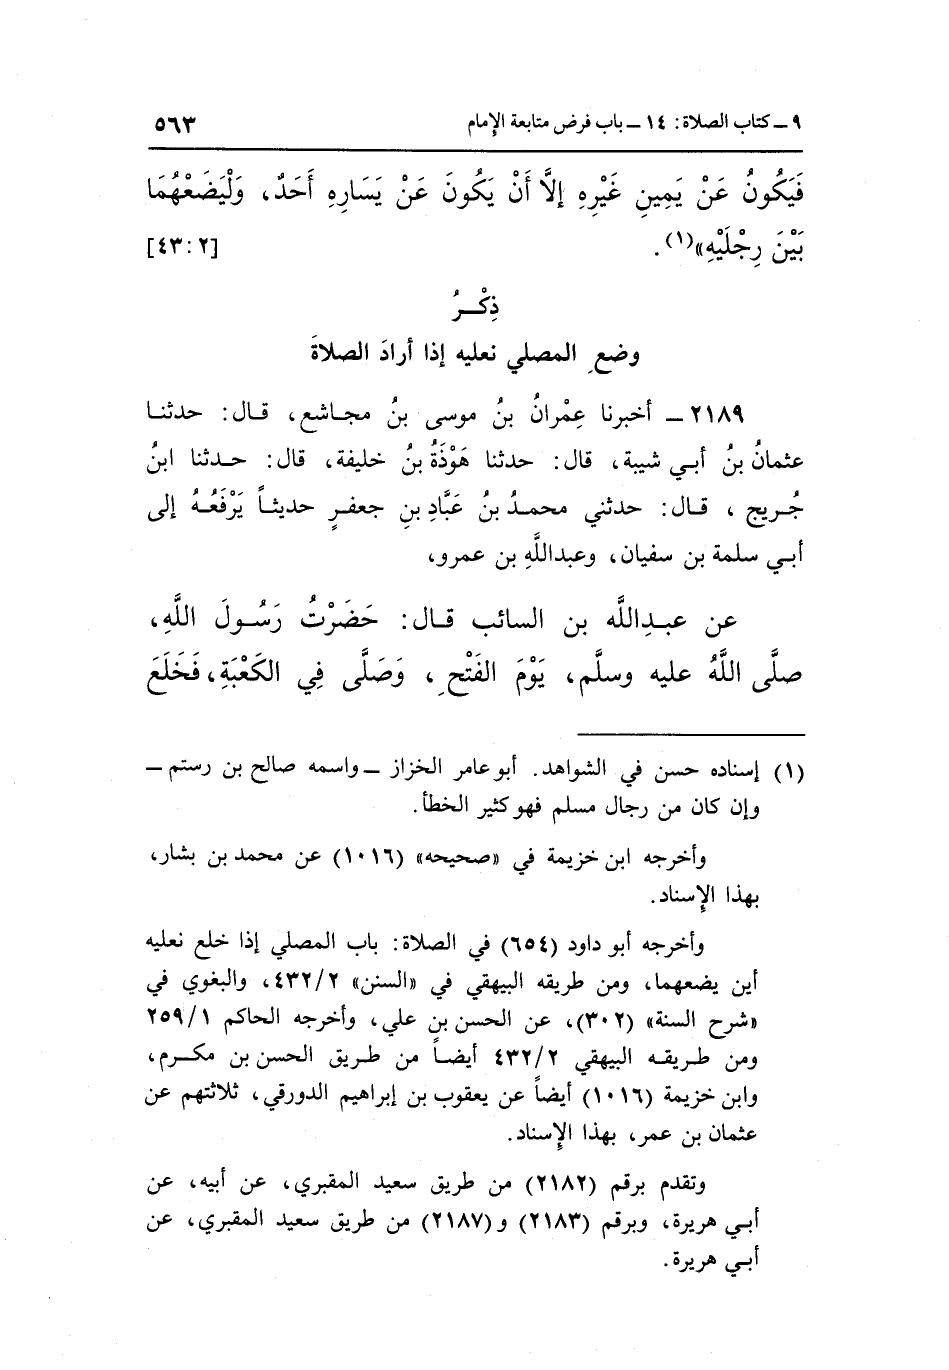 ٩ ــ كتاب الصلاة : ١٤ ــ باب فرض متابعة الإمام ٥٦٣
فَيَكُونُ عَنْ يَمِينِ غَيْرِهِ إِلاَّ أَنْ يَكُونَ عَنْ يَسَارِهِ أَحَدٌ، وَلْيَضَعْهُمَا
بَيْنَ رِجْلَيْهِ»(١). [٢: ٤٣]
ذِكْـرُ
وضعِ المصلي نعليه إذا أرادَ الصلاةَ
٢١٨٩ ــ أخبرنا عِمْرانُ بنُ موسى بنُ مجـاشع، قـال: حدثنـا
عثمانُ بنُ أبـي شيبة، قال: حدثنا هَوْذَةُ بنُ خليفة، قال: حـدثنا ابنُ
جُـريج ، قـال: حدثني محمـدُ بنُ عَبَّادِ بنِ جعفـرٍ حديثـاً يَرْفَعُـهُ إلى
أبـي سلمة بن سفيان، وعبداللَّهِ بن عمرو،
عن عبـدِاللَّه بن السائب قـال: حَضَرْتُ رَسُـولَ اللَّهِ،
صلَّى اللَّهُ عليه وسلَّم، يَوْمَ الفَتْحِ ، وَصَلَّى فِي الكَعْبَةِ، فَخَلَعَ
(١) إسناده حسن في الشواهد. أبو عامر الخزاز ــ واسمه صالح بن رستم ــ
وإن كان من رجال مسلم فهو كثير الخطأ.
وأخرجه ابن خزيمة في «صحيحه» (١٠١٦) عن محمد بن بشار،
بهذا الإسناد.
وأخرجه أبو داود (٦٥٤) في الصلاة: باب المصلي إذا خلع نعليه
أين يضعهما، ومن طريقه البيهقي في «السنن» ٤٣٢/٢، والبغوي في
«شرح السنة» (٣٠٢)، عن الحسن بن علي، وأخرجه الحاكم ٢٥٩/١
ومن طـريقـه البيهقي ٤٣٢/٢ أيضـاً من طـريق الحسن بن مكـرم،
وابن خزيمة (١٠١٦) أيضاً عن يعقوب بن إبراهيم الدورقي، ثلاثتهم عن
عثمان بن عمر، بهذا الإسناد.
وتقدم برقم (٢١٨٢) من طريق سعيد المقبري، عن أبيه، عن
أبـي هريرة، وبرقم (٢١٨٣) و(٢١٨٧) من طريق سعيد المقبري، عن
أبـي هريرة.